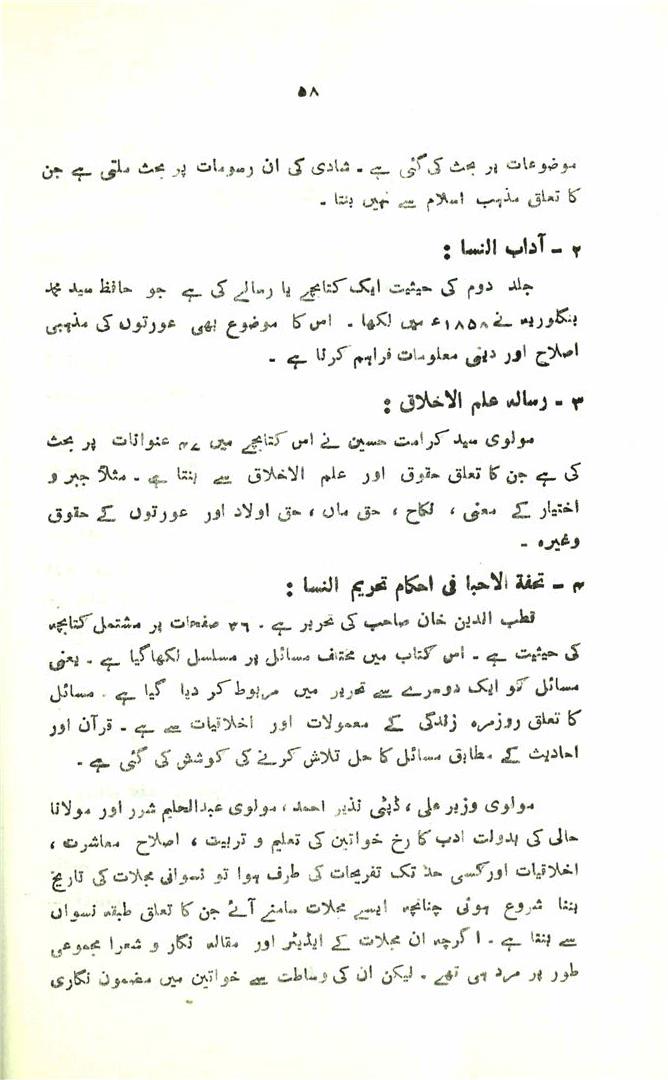 ۵۸
موضوعات پر بحث کی گئی ہے ۔ شادی کی ان رسومات پر بحث ملتی ہے جن
کا تعلق مذہب اسلام سے نہیں بنتا ۔
۲ ۔ آداب النسا :
جلد دوم کی حیثیت ایک کتابچے یا رسالے کی ہے جو حافظ سید محمد
بنگلوریہ نے ۱۸۵۸ء میں لکھا ۔ اس کا موضوع بھی عورتوں کی مذہبی
اصلاح اور دینی معلومات فراہم کرنا ہے ۔
۳ ۔ رسالہ علم الاخلاق :
مولوی سید کرامت حسین نے اس کتابچے میں ۴۷ عنوانات پر بحث
کی ہے جن کا تعلق حقوق اور علم الاخلاق سے بنتا ہے ۔ مثلاً جبر و
اختیار کے معنی ، نکاح ، حق ماں ، حق اولاد اور عورتوں کے حقوق
وغیرہ ۔
۴ ۔ تحفۃ الاحبا فی احکام تحریم النسا :
قطب الدین خان صاحب کی تحریر ہے ۔ ۳۶ صفحات پر مشتمل کتابچہ
کی حیثیت ہے ۔ اس کتاب میں مختلف مسائل پر مسلسل لکھا گیا ہے ۔ یعنی
مسائل کو ایک دوسرے سے تحریر میں مربوط کر دیا گیا ہے ۔ مسائل
کا تعلق روزمرہ زندگی کے معمولات اور اخلاقیات سے ہے ۔ قرآن اور
احادیث کے مطابق مسائل کا حل تلاش کرنے کی کوشش کی گئی ہے ۔
مولوی وزیر علی ، ڈپٹی نذیر احمد ، مولوی عبدالحلیم شرر اور مولانا
حالی کی بدولت ادب کا رخ خواتین کی تعلیم و تربیت ، اصلاح معاشرت ،
اخلاقیات اور کسی حد تک تفریحات کی طرف ہوا تو نسوانی مجلات کی تاریخ
بننا شروع ہوئی چنانچہ ایسے مجلات سامنے آئے جن کا تعلق طبقہ نسواں
سے بنتا ہے ۔ اگرچہ ان مجلات کے ایڈیٹر اور مقالہ نگار و شعرا مجموعی
طور پر مرد ہی تھے ۔ لیکن ان کی وساطت سے خواتین میں مضمون نگاری